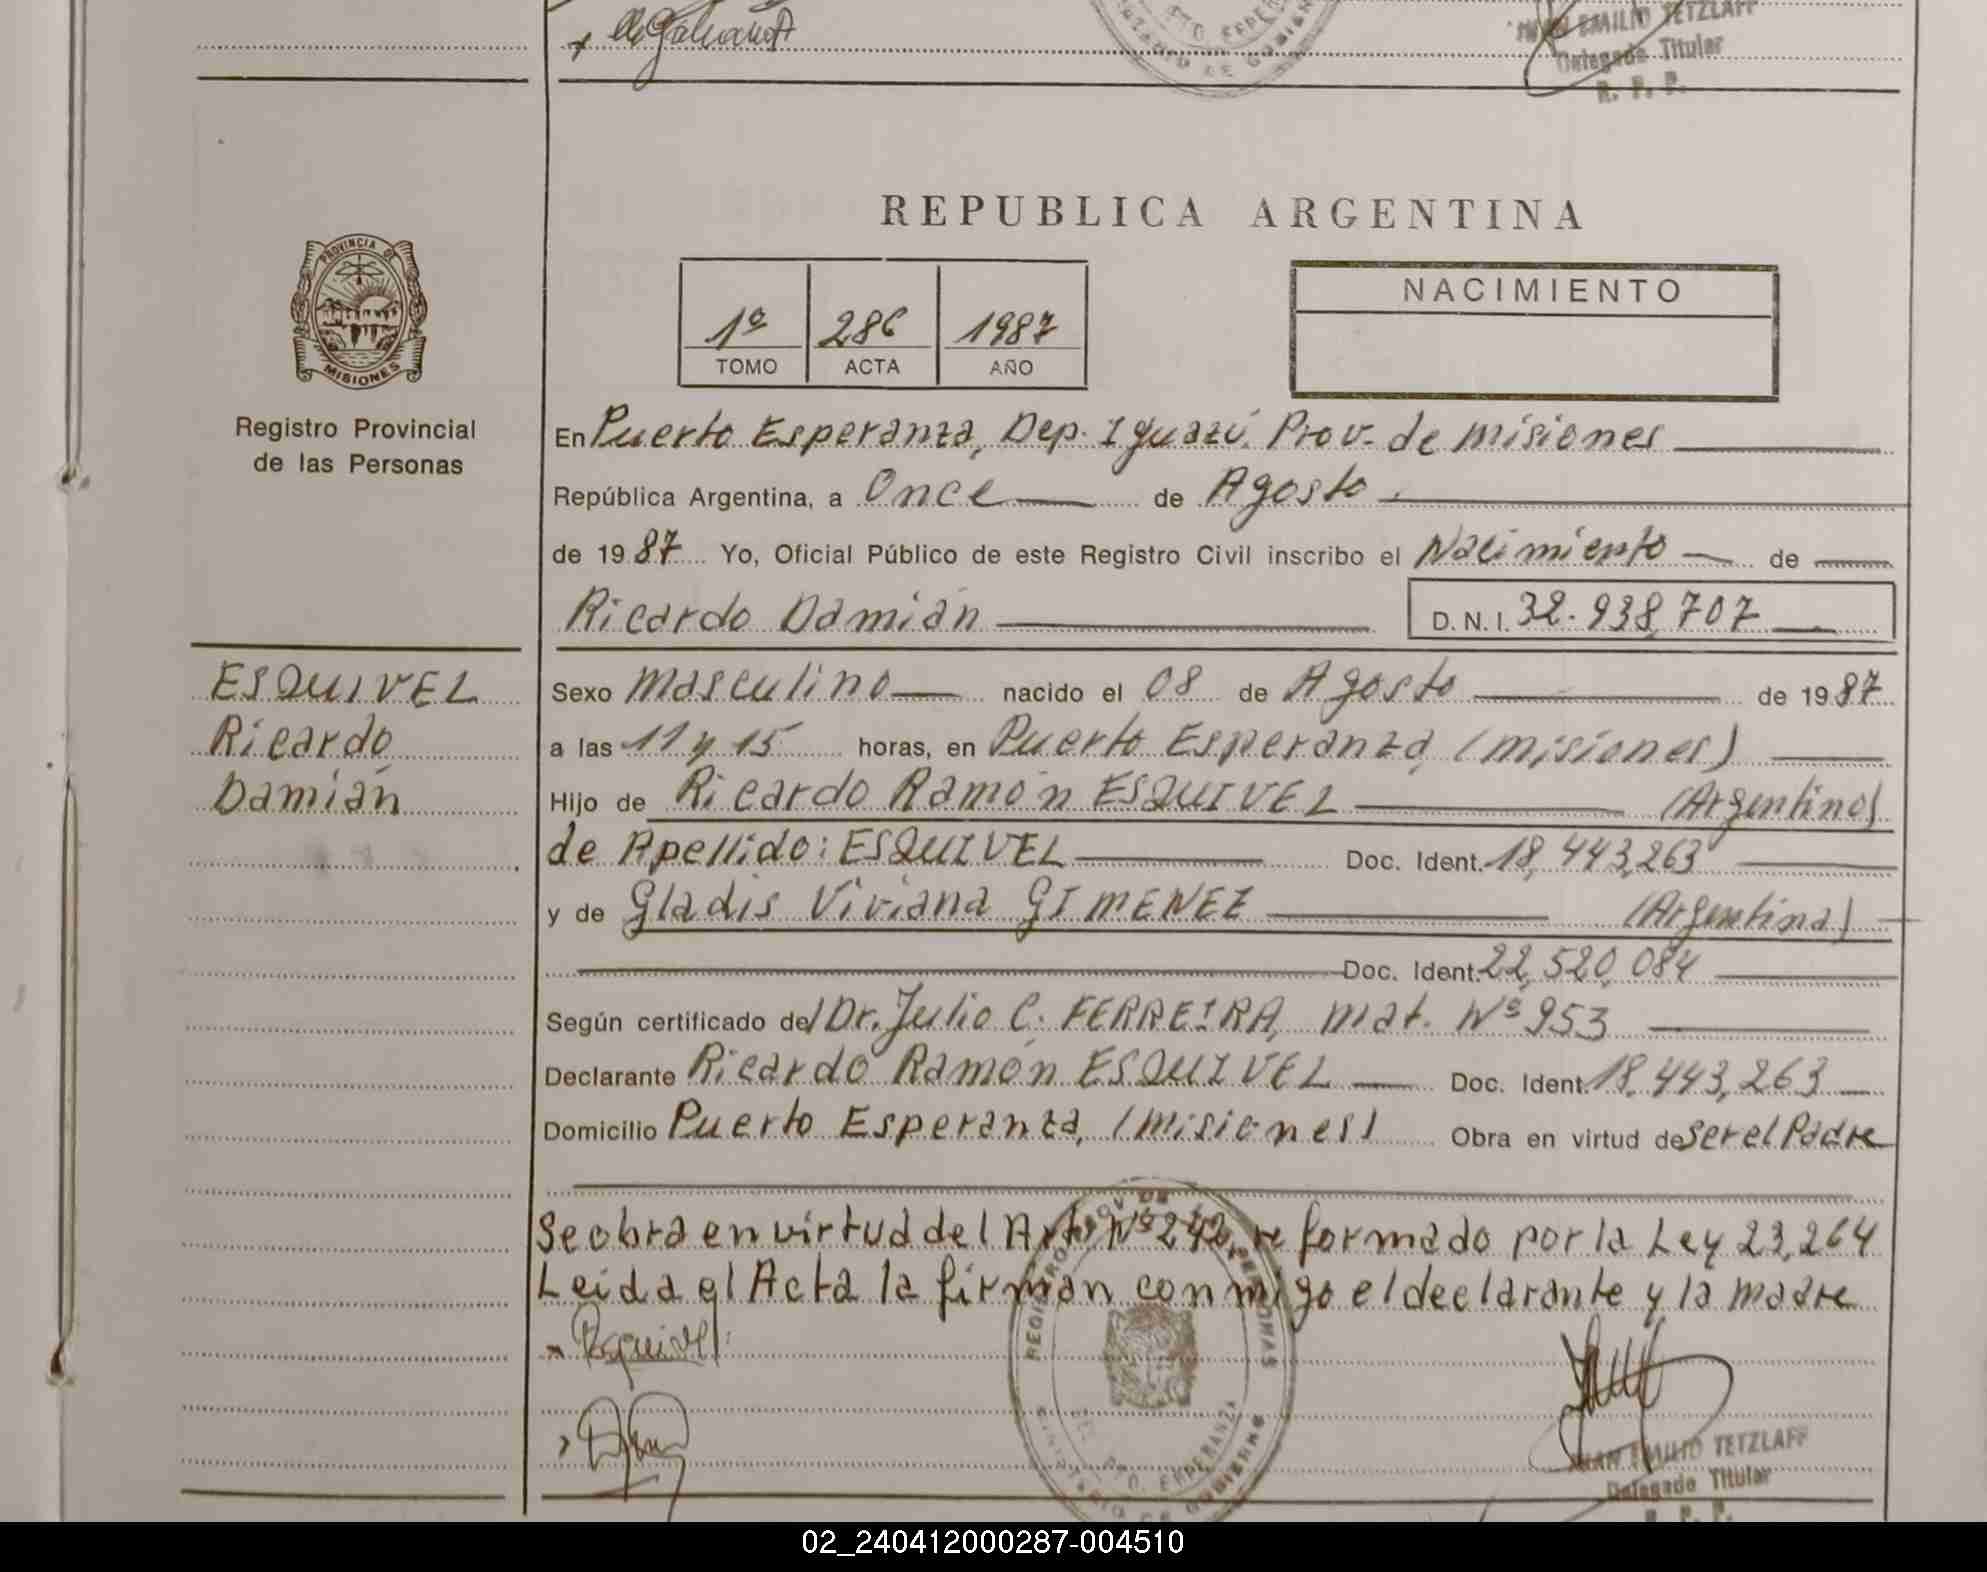 JUAN EMILIO TETZLAFF
Delegado Titular
R. P. P.
REPUBLICA ARGENTINA
PROVINCIA DE
MISIONES
Registro Provincial
de las Personas
1º 286 1987
TOMO ACTA AÑO
NACIMIENTO
En Puerto Esperanza, Dep. Iguazú. Prov. de Misiones
República Argentina, a Once de Agosto
de 1987 Yo, Oficial Público de este Registro Civil inscribo el Nacimiento de
Ricardo Damián D.N.I. 32.938,707
ESQUIVEL
Ricardo
Damián
Sexo Masculino nacido el 08 de Agosto de 1987
a las 11 y 15 horas, en Puerto Esperanza, (Misiones)
Hijo de Ricardo Ramón ESQUIVEL (Argentino)
de Apellido: ESQUIVEL Doc. Ident. 18,443,263
y de Gladis Viviana GIMENEZ (Argentina)
Doc. Ident. 22,520,084
Según certificado del Dr. Julio C. FERREIRA, Mat. Nº 953
Declarante Ricardo Ramón ESQUIVEL Doc. Ident. 18,443,263
Domicilio Puerto Esperanza, (Misiones) Obra en virtud de ser el Padre
Se obra en virtud del Arto Nº 242, reformado por la Ley 23,264
Leida el Acta la firman conmigo el declarante y la madre
Esquivel
JUAN EMILIO TETZLAFF
Delegado Titular
R. P. P.
02_240412000287-004510